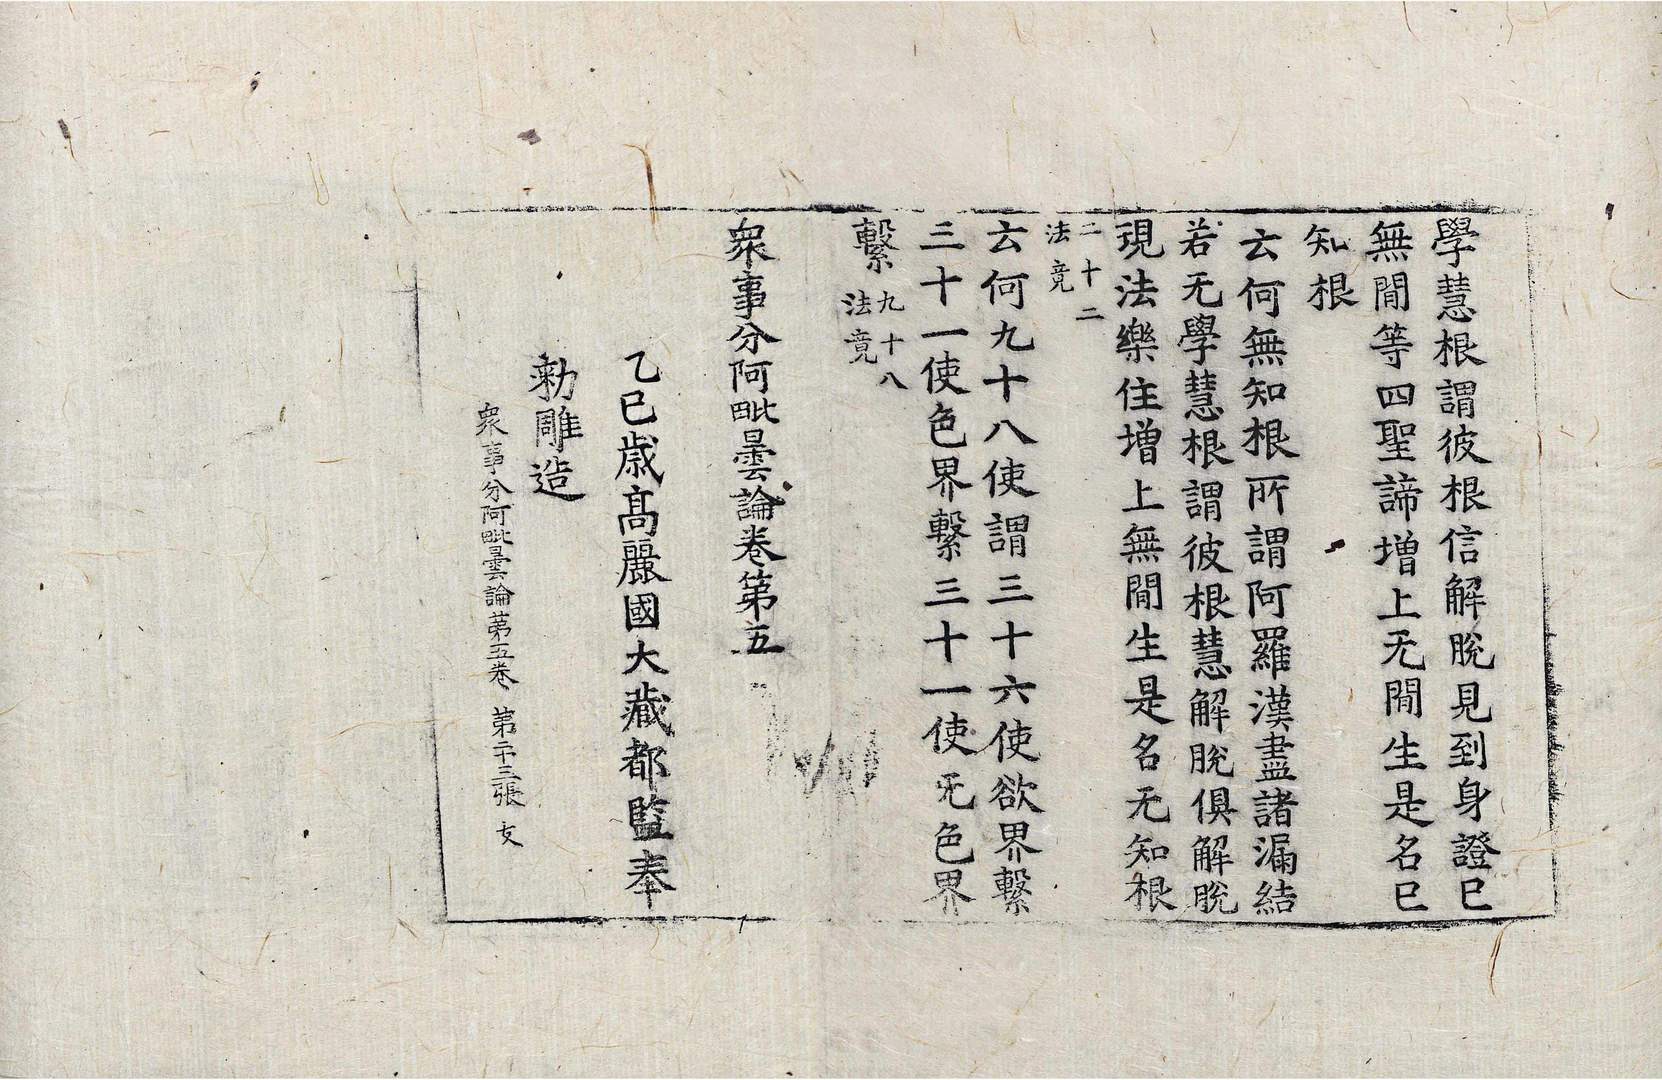 學慧根謂彼根信解脫見到身證已
無閒等四聖諦增上无閒生是名已
知根
云何無知根所謂阿羅漢盡諸漏結
若无學慧根謂彼根慧解脫俱解脫
現法樂住增上無閒生是名无知根
二十二
法竟
云何九十八使謂三十六使欲界繫
三十一使色界繫三十一使无色界
繫
九十八
法竟
衆事分阿毗曇論卷第五
乙巳歲高麗國大藏都監奉
勅雕造
衆事分阿毗曇論第五卷 第二十三張 友